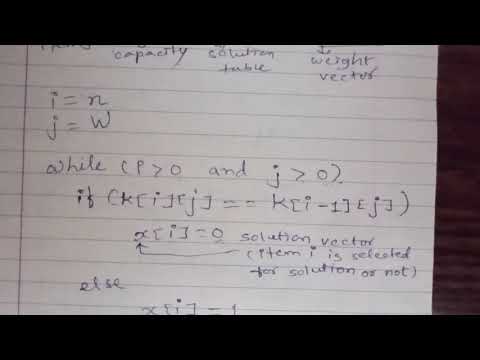 capacity solution weight
table vector
i = n
j = W
while (i > 0 and j > 0)
if (K[i][j] == K[i-1][j])
x[i] = 0 solution vector
(item i is selected
for solution or not)
else
x[i] = 1